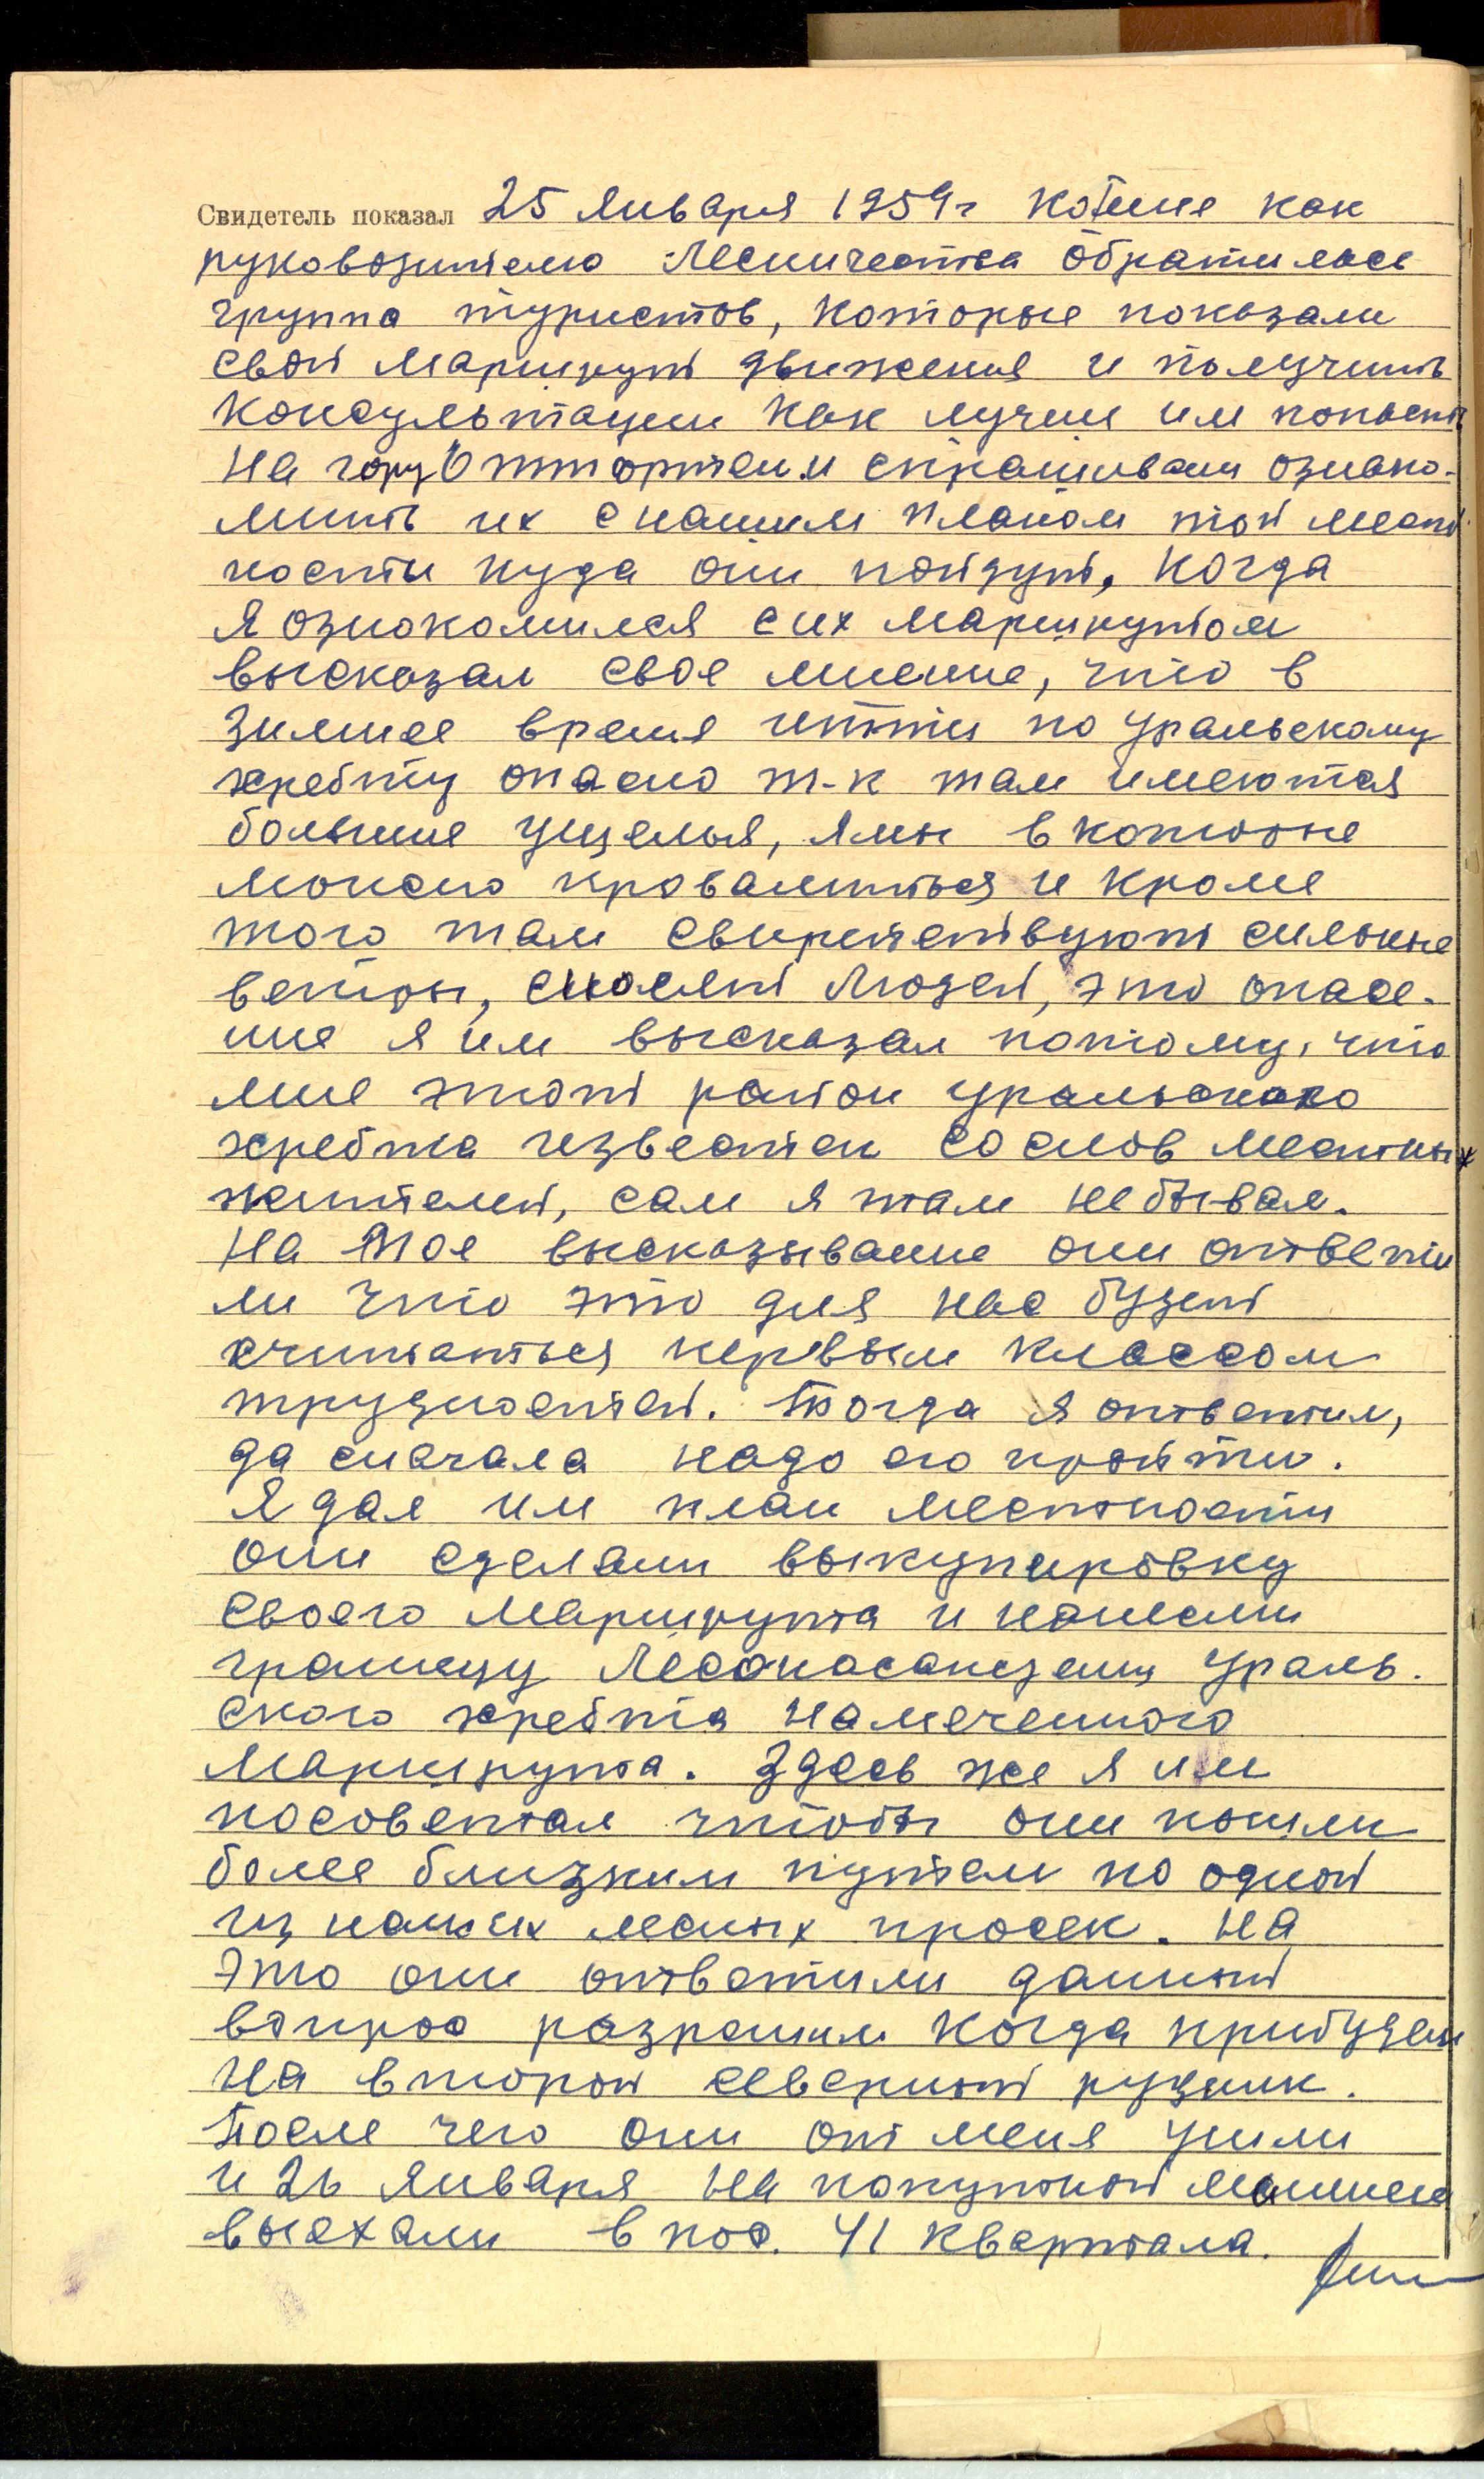 Свидетель показал 25 января 1959г ко мне как
руководителю лесничества обратилась
группа туристов, которые показали
свой маршрут движения и получить
консультации как лучше им попасть
на гору Оттортен и спрашивали ознако-
мить их с нашим планом той мест
ности куда они пойдут, когда
я ознокомился с их маршрутом
высказал свое мнение, что в
зимнее время итти по уральскому
хребту опасно т-к там имеются
большие ущелья, ямы в которые
можно провалиться и кроме
того там свирепствуют сильные
ветры, сносят людей, это опасе-
ние я им высказал потому, что
мне этот район уральского
хребта известен со слов местных
жителей, сам я там не бывал.
На мое высказывание они ответи
ли что это для нас будет
считаться первым классом
трудностей. Тогда я ответил,
да сначала надо его пройти.
Я дал им план местности
они сделали выкупировку
своего маршрута и нанесли
границу лесонасаждения ураль-
ского хребта намеченного
маршрута. Здесь же я им
посоветал чтобы они пошли
более близким путем по одной
из наших лесных просек. На
это они ответили данный
вопрос разрешим когда прибудем
на второй северный рудник.
После чего они от меня ушли
и 26 января на попутной машине
выехали в пос. 41 квартала.